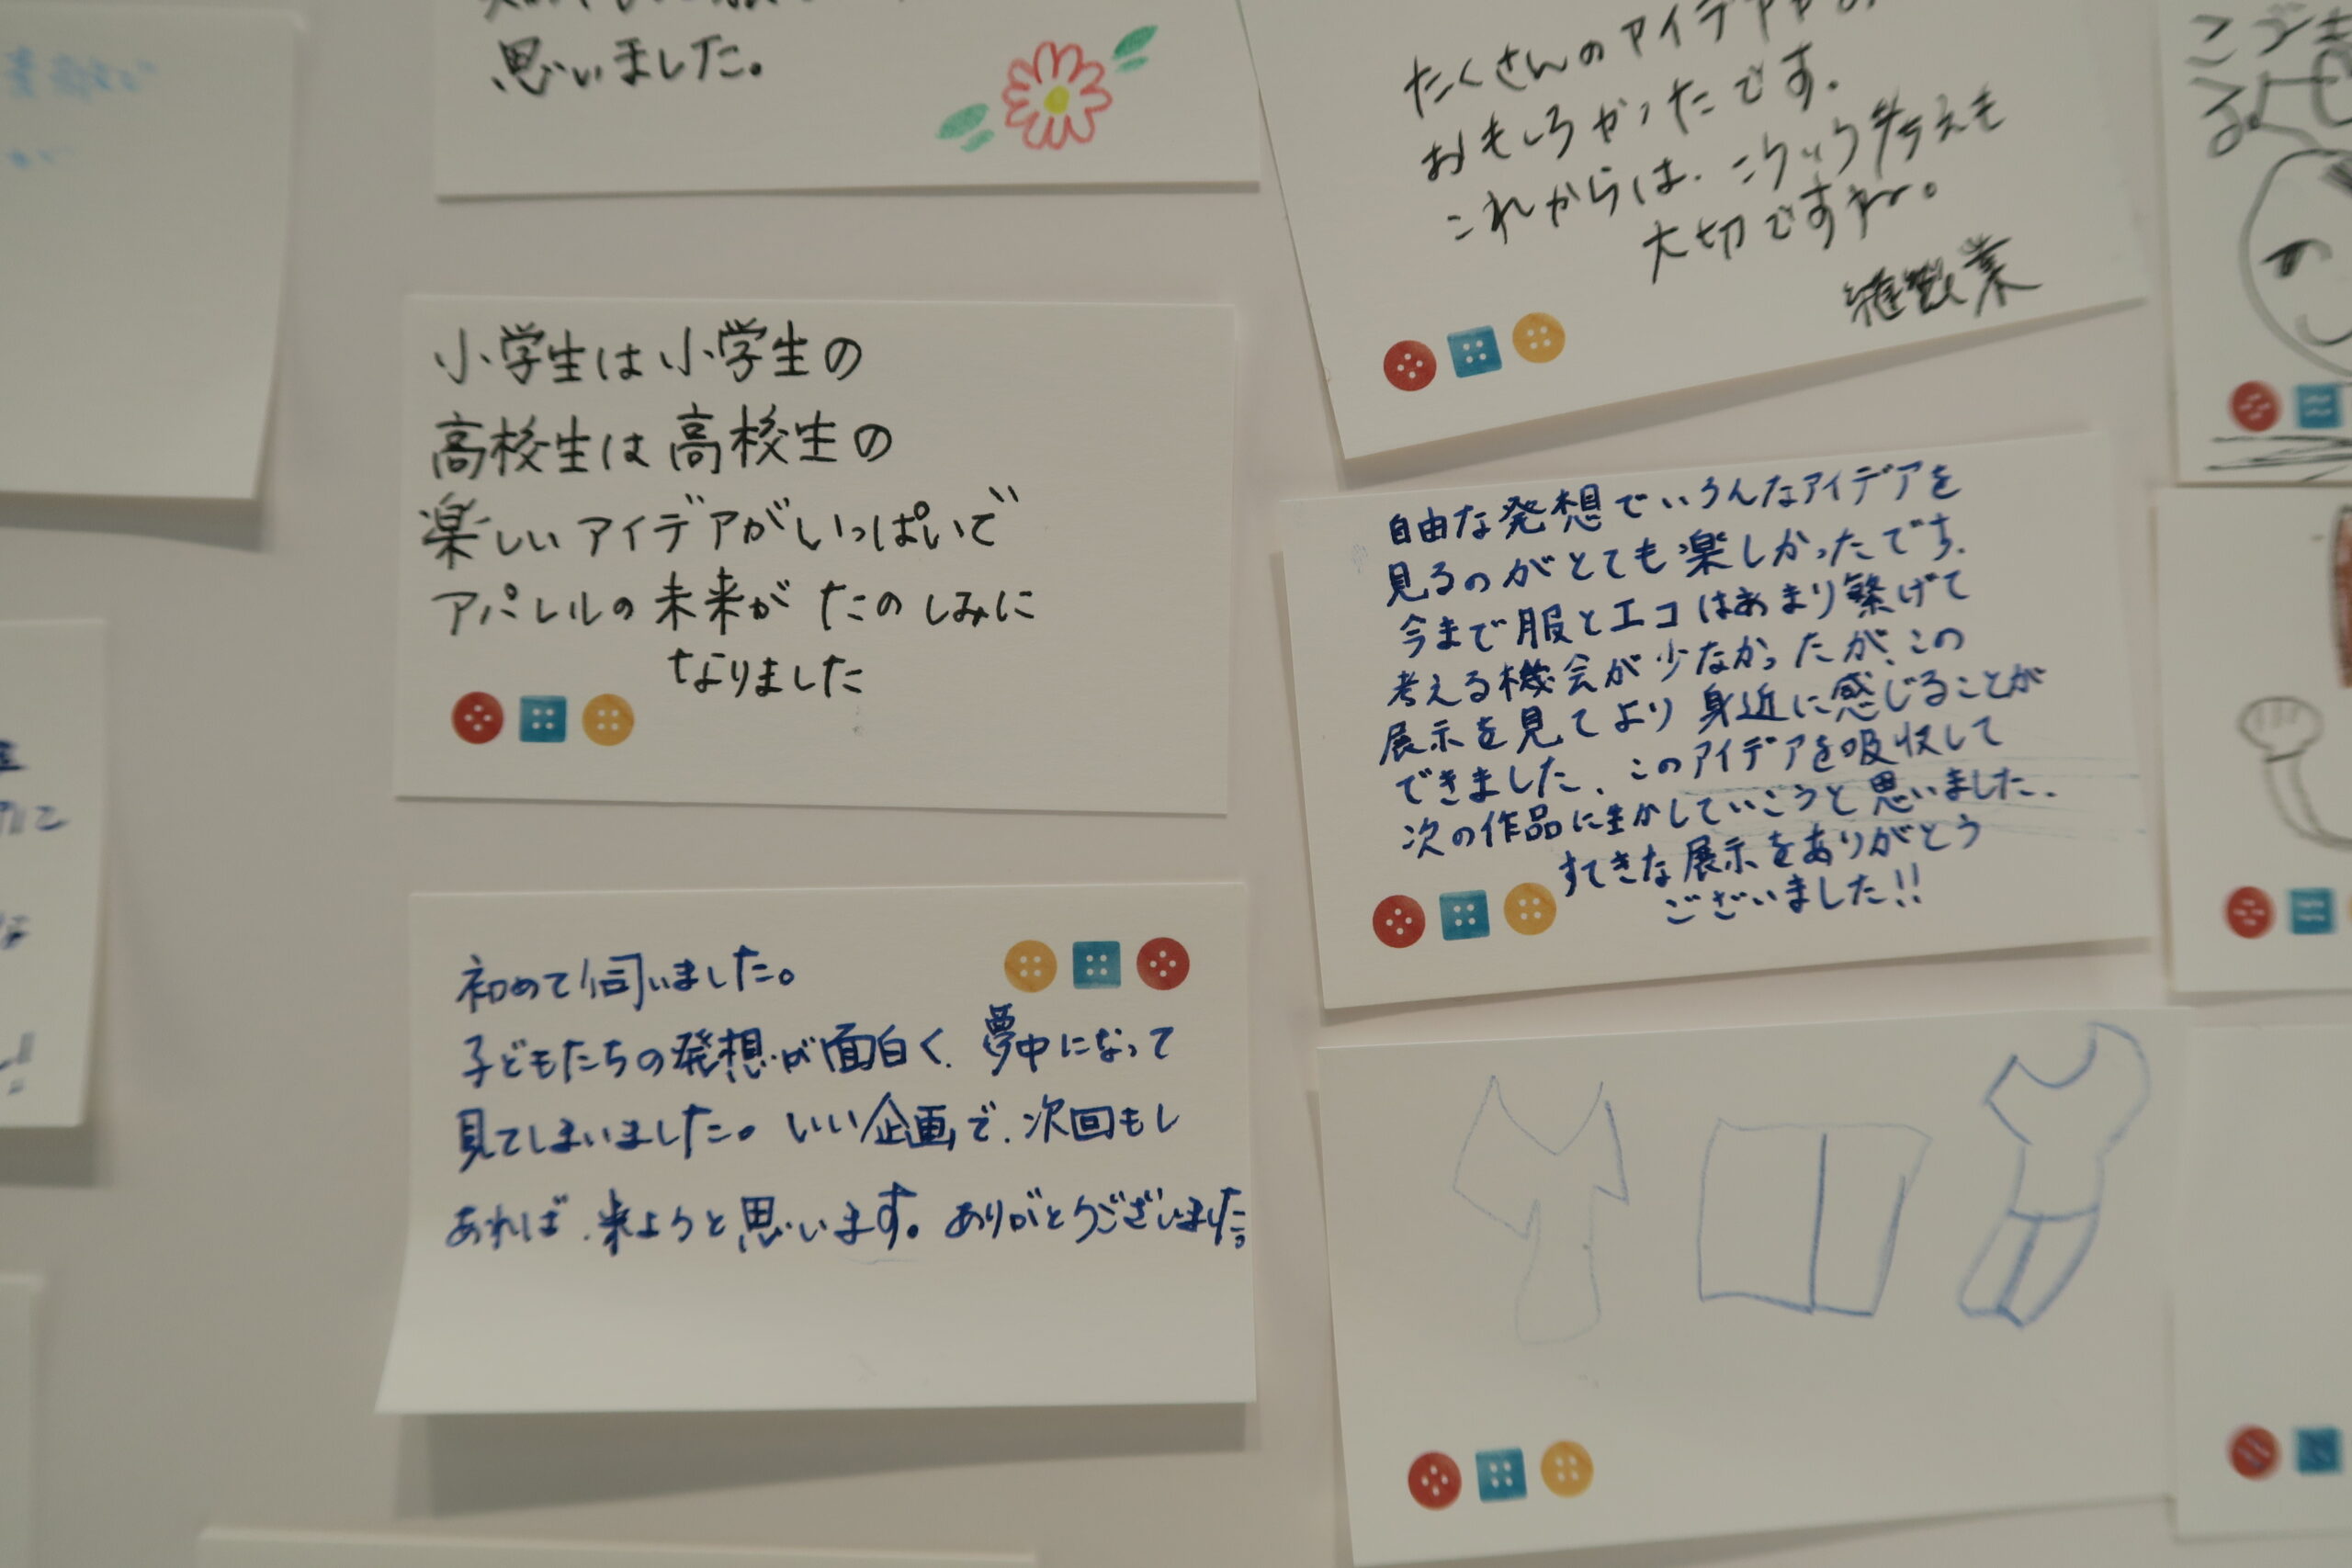 思いました。
たくさんのアイデアが
おもしろかったです.
これからは、こういう考えも
大切ですね。
小学生は小学生の
高校生は高校生の
楽しいアイデアがいっぱいで
アパレルの未来がたのしみに
なりました
自由な発想でいろんなアイデアを
見るのがとても楽しかったです.
今まで服とエコはあまり繋げて
考える機会が少なかったが、この
展示を見てより身近に感じることが
できました、このアイデアを吸収して
次の作品に生かしていこうと思いました.
すてきな展示をありがとう
ございました!!
初めて伺いました。
子どもたちの発想が面白く、夢中になって
見てしまいました。いい企画で、次回もし
あれば、来ようと思います。ありがとうございました。